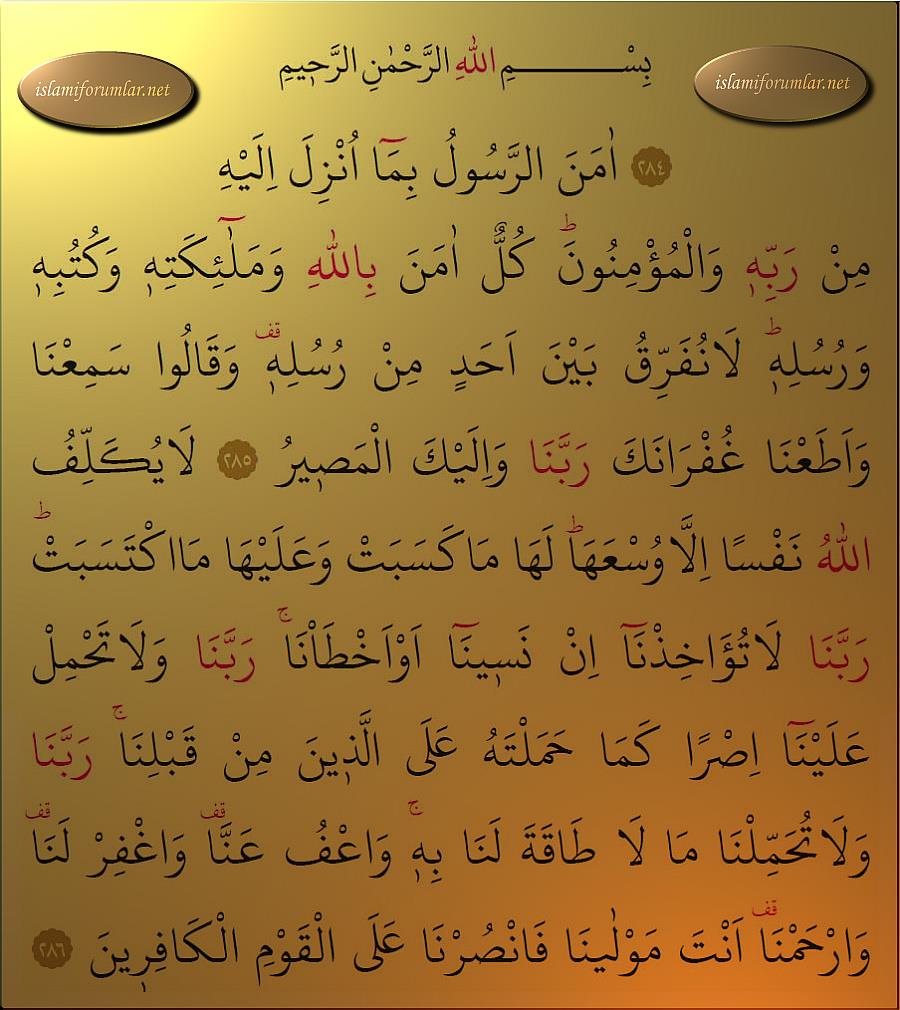 islamiforumlar.net
بِسْــــــــــمِ اللّٰهِ الرَّحْمٰنِ الرَّحٖيمِ
islamiforumlar.net
﴿٢٨٤﴾ اٰمَنَ الرَّسُولُ بِمَٓا اُنْزِلَ اِلَيْهِ
مِنْ رَبِّهٖ وَالْمُؤْمِنُونَؕ كُلٌّ اٰمَنَ بِاللّٰهِ وَمَلٰٓئِكَتِهٖ وَكُتُبِهٖ
وَرُسُلِهٖؕ لَانُفَرِّقُ بَيْنَ اَحَدٍ مِنْ رُسُلِهٖࣞ وَقَالُوا سَمِعْنَا
وَاَطَعْنَا غُفْرَانَكَ رَبَّنَا وَاِلَيْكَ الْمَصٖيرُ ﴿٢٨٥﴾ لَايُكَلِّفُ
اللّٰهُ نَفْسًا اِلَّا وُسْعَهَاؕ لَهَا مَاكَسَبَتْ وَعَلَيْهَا مَااكْتَسَبَتْؕ
رَبَّنَا لَاتُؤَاخِذْنَٓا اِنْ نَسٖينَٓا اَوْاَخْطَاْنَاۚ رَبَّنَا وَلَاتَحْمِلْ
عَلَيْنَٓا اِصْرًا كَمَا حَمَلْتَهُ عَلَى الَّذٖينَ مِنْ قَبْلِنَاۚ رَبَّنَا
وَلَاتُحَمِّلْنَا مَا لَا طَاقَةَ لَنَا بِهٖۚ وَاعْفُ عَنَّاࣞ وَاغْفِرْ لَنَاࣞ
وَارْحَمْنَاࣞ اَنْتَ مَوْلٰينَا فَانْصُرْنَا عَلَى الْقَوْمِ الْكَافِرٖينَ ﴿٢٨٦﴾